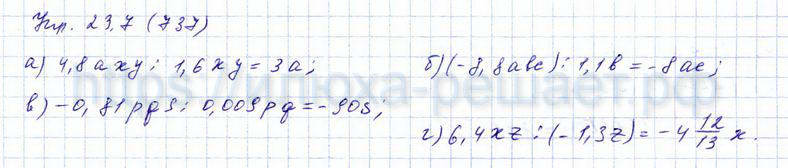 Упр. 23.7 (737)
а) 4,8axy : 1,6xy = 3a;
б) (-8,8abc) : 1,1b = -8ac;
в) -0,81pqs : 0,009pq = -90s;
г) 6,4xz : (-1,3z) = -4 12/13 x.
https://плюха-решает.рф